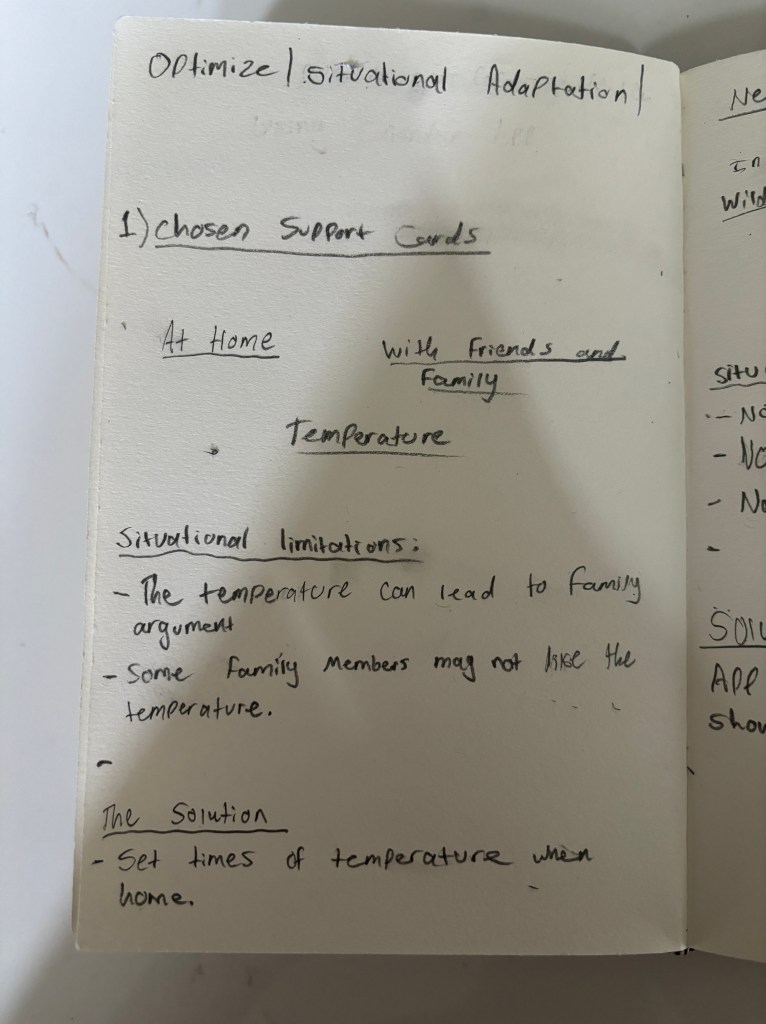 Optimize | Situational Adaptation |
1) Chosen Support Cards
At Home
With Friends and
Family
Temperature
Situational limitations:
- The temperature can lead to family
argument
- Some Family Members may not like the
temperature.
-
The Solution
- Set times of temperature when
home.
In
- No
-
App